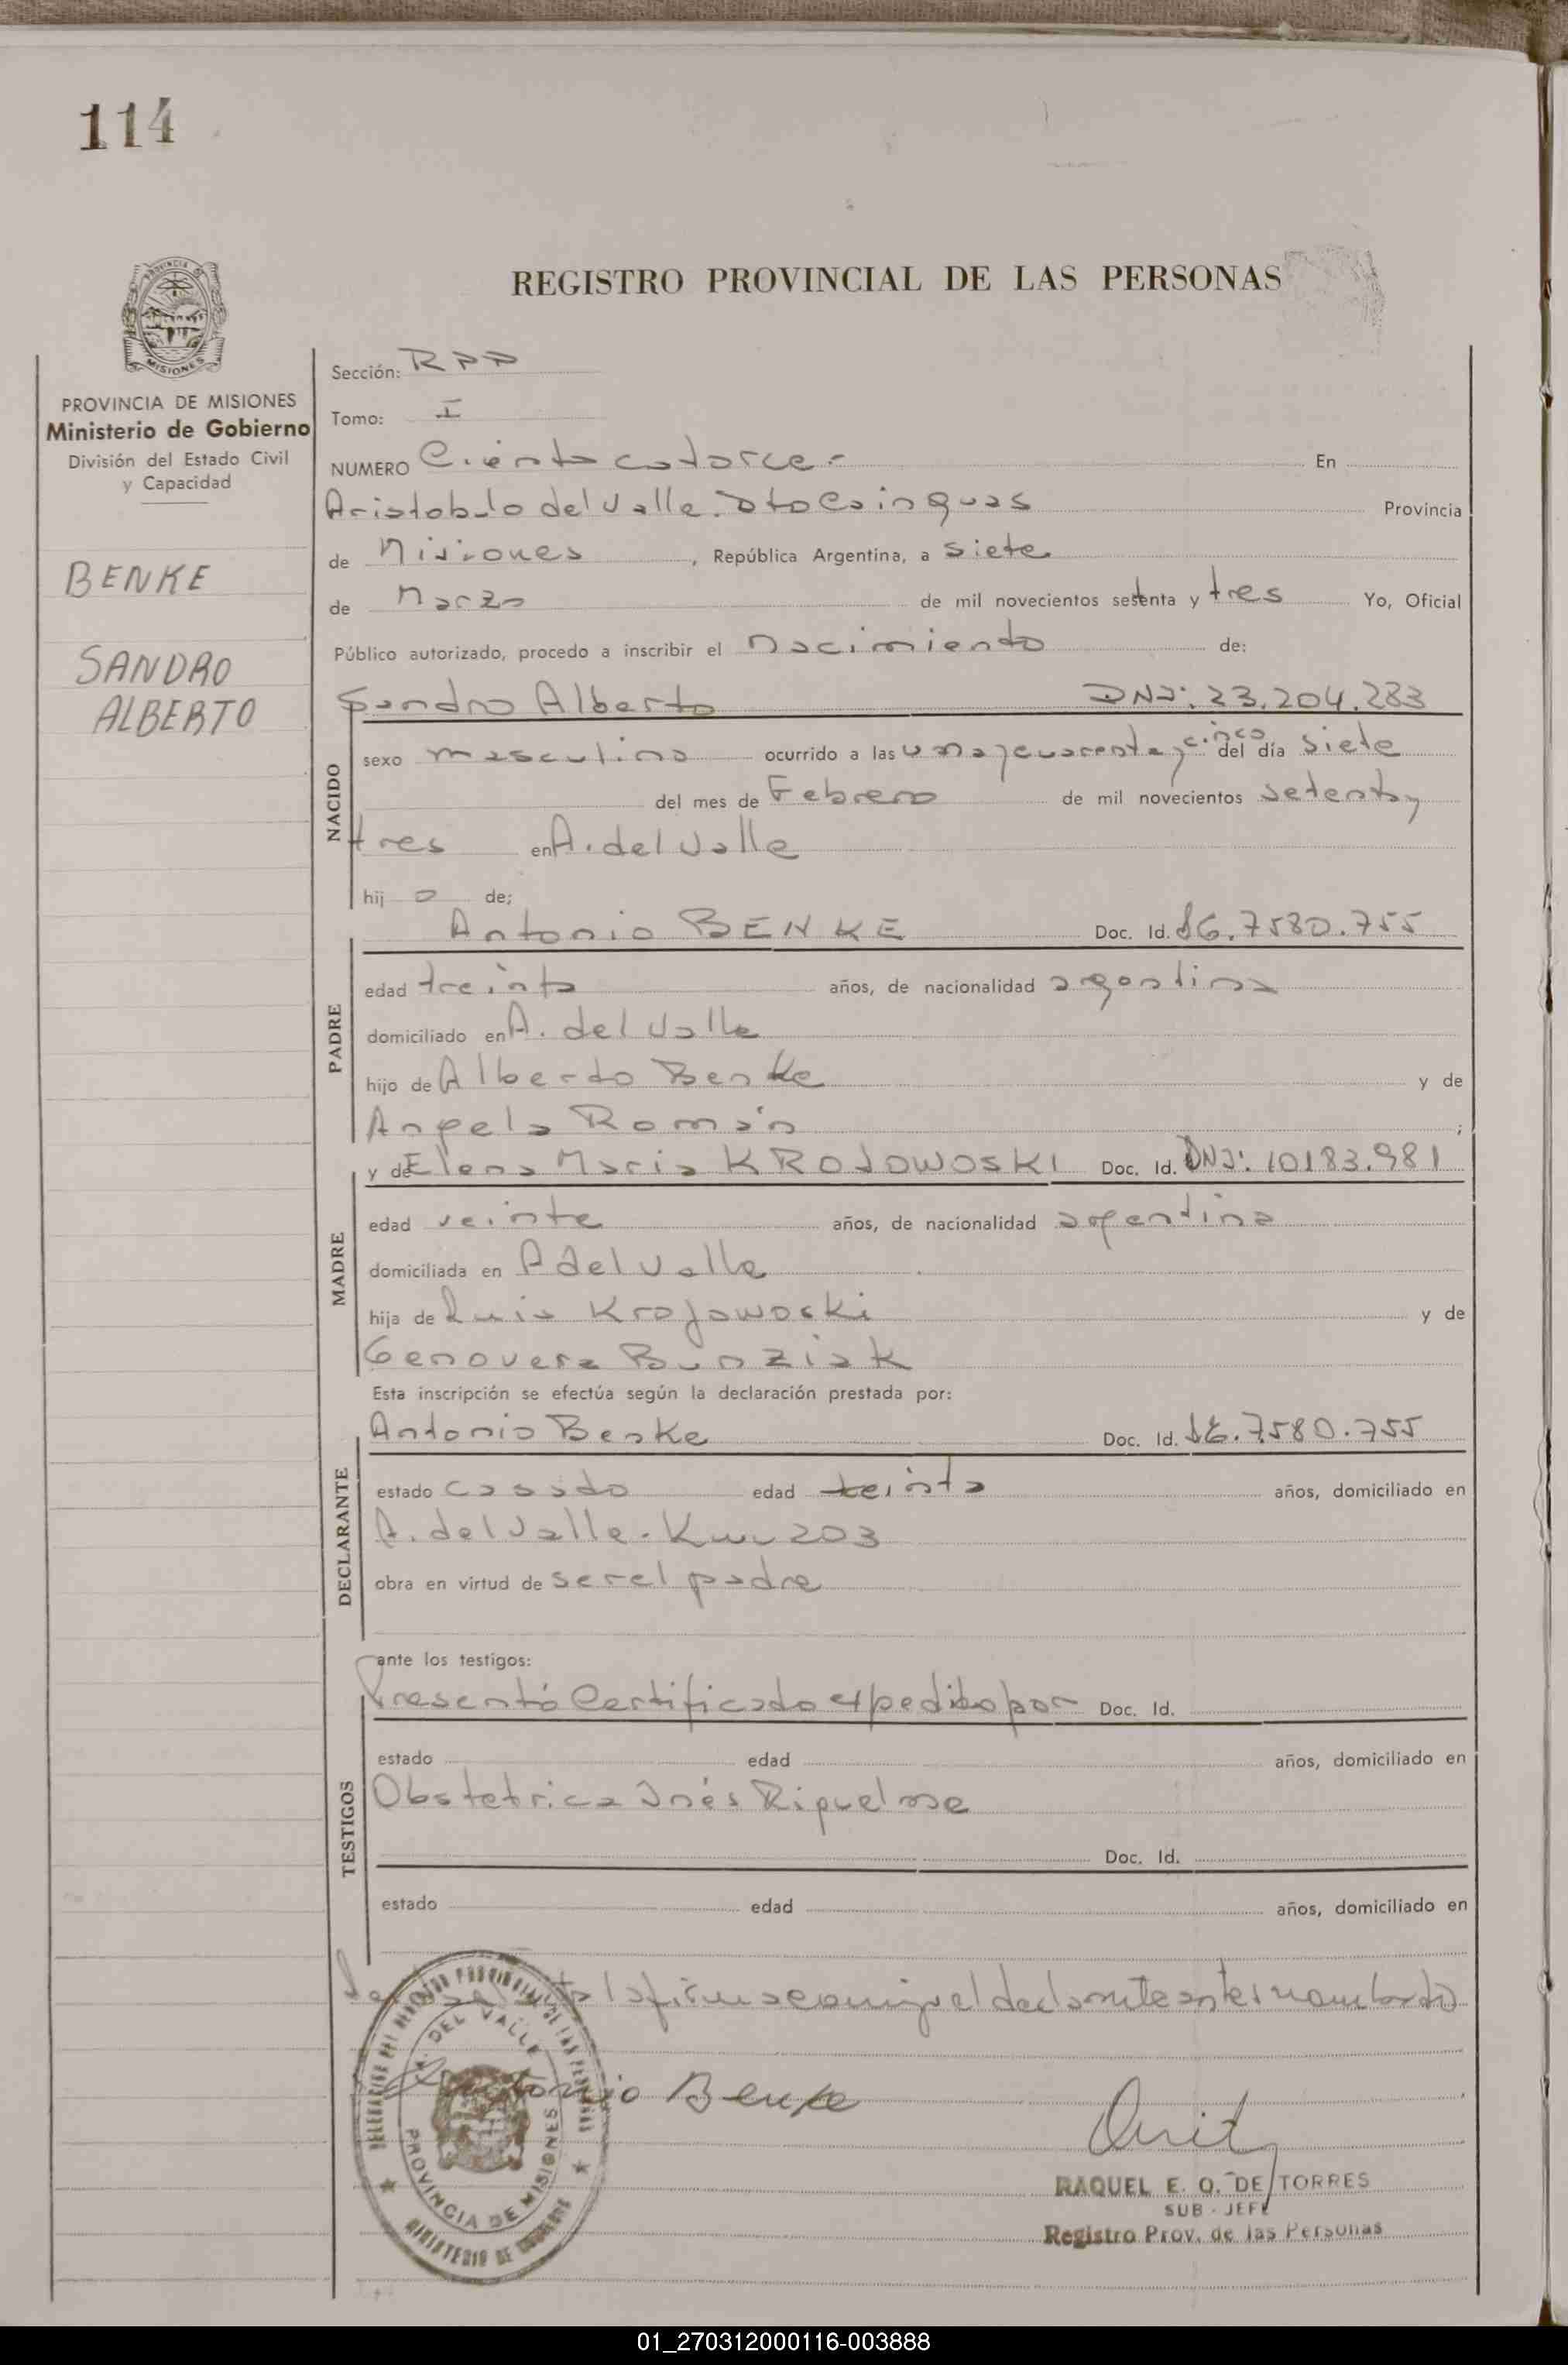 114
REGISTRO PROVINCIAL DE LAS PERSONAS
PROVINCIA DE MISIONES
Ministerio de Gobierno
División del Estado Civil
y Capacidad
BENKE
SANDRO
ALBERTO
Sección: RPP
Tomo: I
NUMERO Ciento catorce.- En
Aristobulo del Valle. Dto Cainguas Provincia
de Misiones, República Argentina, a siete
de Marzo de mil novecientos setenta y tres Yo, Oficial
Público autorizado, procedo a inscribir el nacimiento de:
Sandro Alberto DNI: 23.204.283
NACIDO
sexo masculino ocurrido a las una y cuarenta y cinco del día siete
del mes de Febrero de mil novecientos setenta y
tres en A. del Valle
hij o de;
Antonio BENKE Doc. Id. 7580.755
PADRE
edad treinta años, de nacionalidad argentina
domiciliado en A. del Valle
hijo de Alberto Benke y de
Angela Román ;
y de Elena Maria KROJOWOSKI Doc. Id. DNI: 10183.981
MADRE
edad veinte años, de nacionalidad argentina
domiciliada en A del Valle
hija de Luis Krojowoski y de
Genoveva Bunziak
Esta inscripción se efectúa según la declaración prestada por:
Antonio Benke Doc. Id. 7580.755
DECLARANTE
estado casado edad teinta años, domiciliado en
A. del Valle - Km 203
obra en virtud de ser el padre
ante los testigos:
Presentó Certificado expedido por Doc. Id.
TESTIGOS
estado edad años, domiciliado en
Obstetrica Inés Riquelme
Doc. Id.
estado edad años, domiciliado en
la firma conmigo el declarante antes nombrado
Antonio Benke
DELEGACION DEL REGISTRO PROVINCIAL DE LAS PERSONAS
A. DEL VALLE
PROVINCIA DE MISIONES
MINISTERIO DE GOBIERNO
RAQUEL E. O. DE TORRES
SUB - JEFE
Registro Prov. de las Personas
01_270312000116-003888